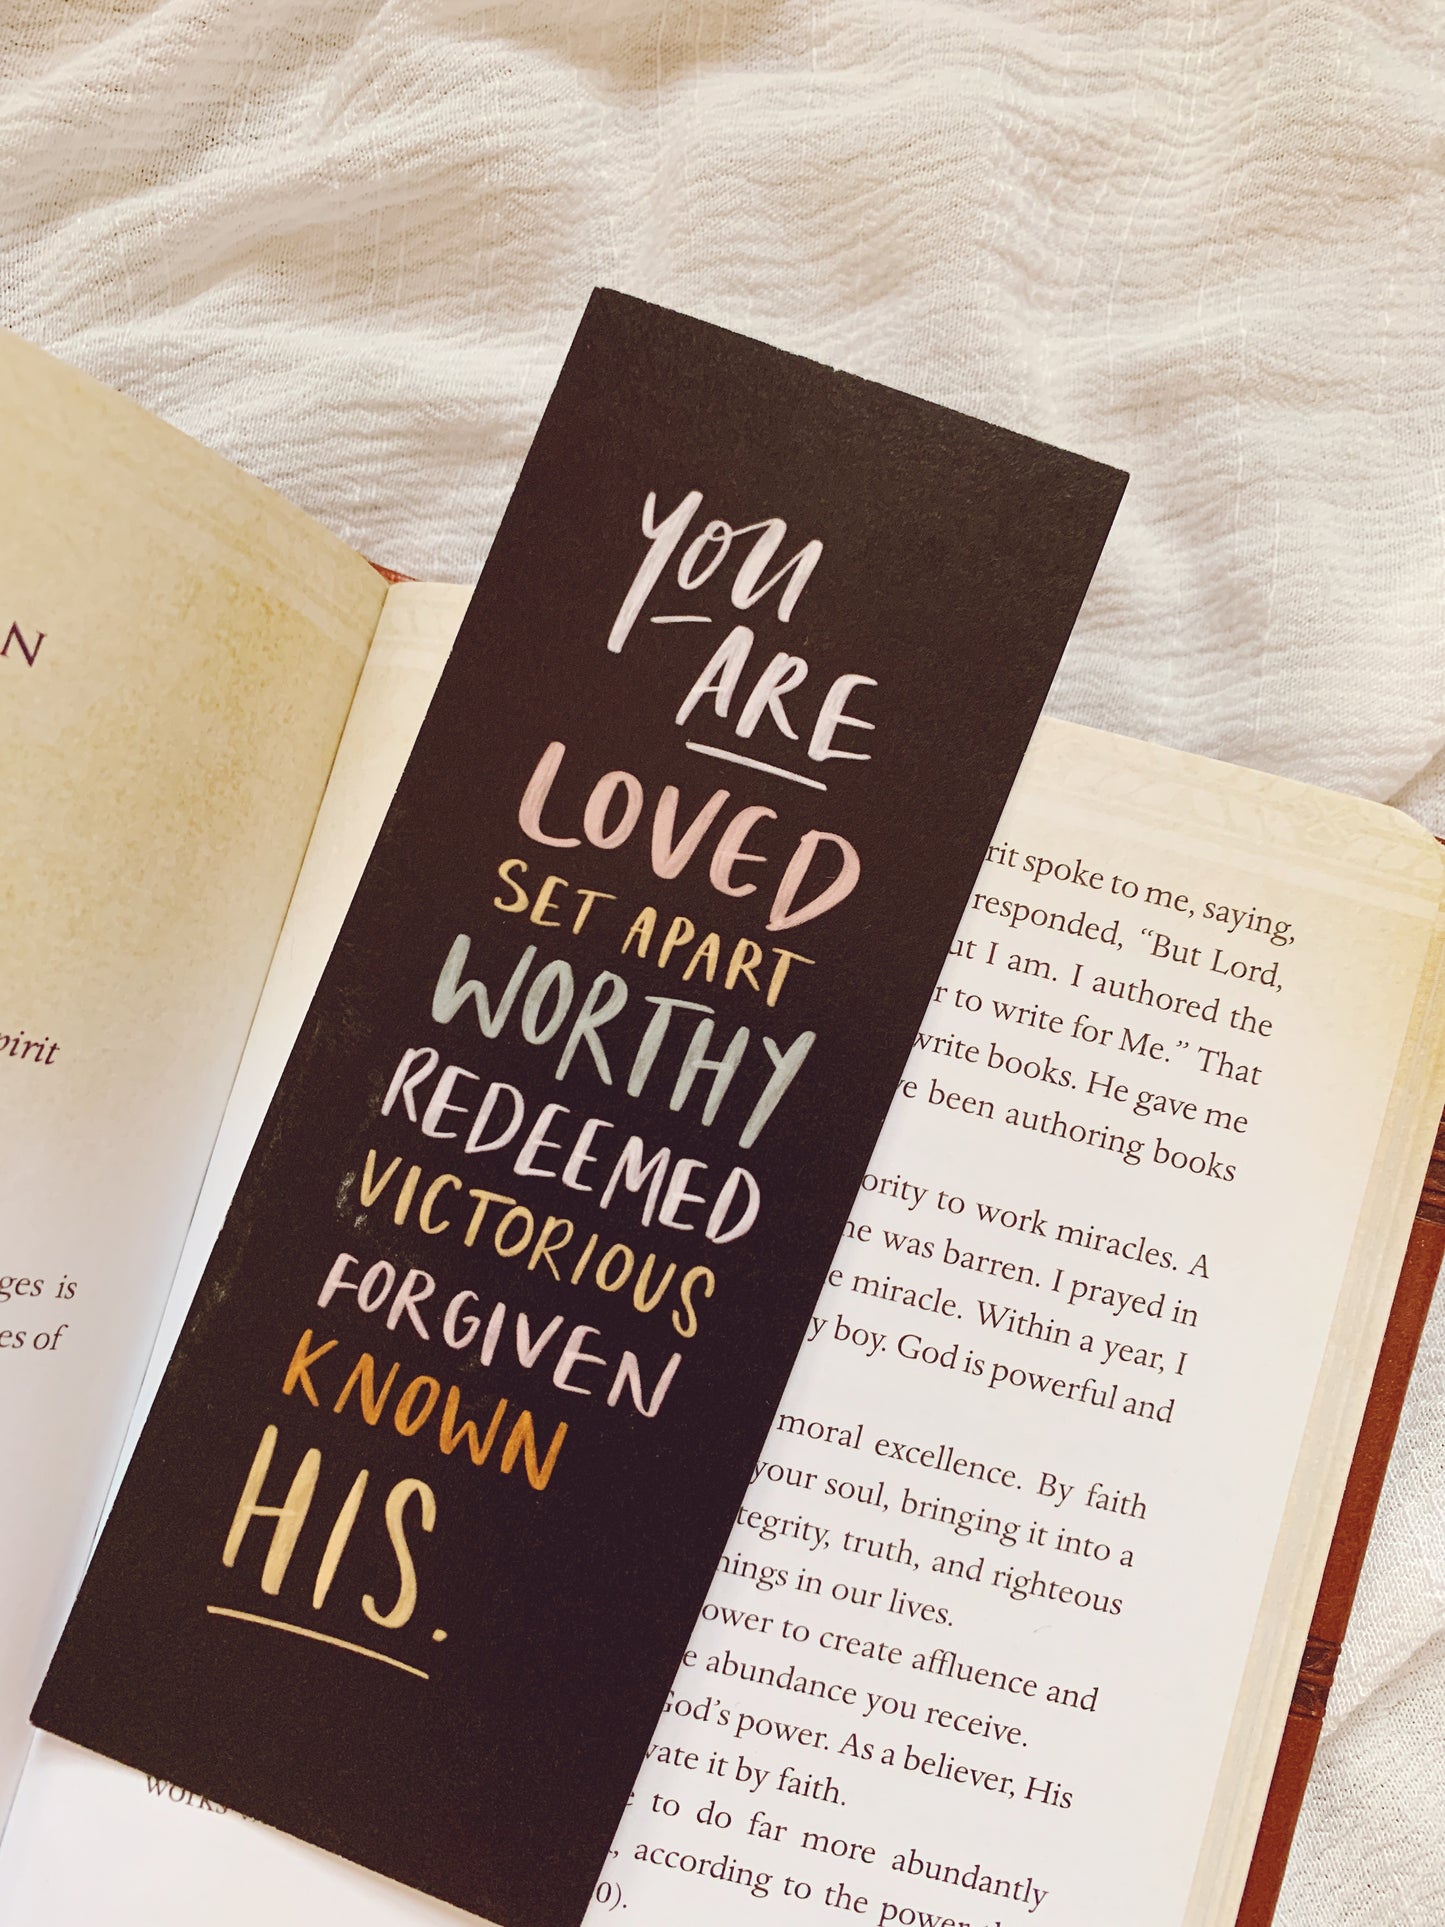 YOU
ARE
LOVED
SET APART
WORTHY
REDEEMED
VICTORIOUS
FORGIVEN
KNOWN
HIS.
N
pirit
ges is
es of
works
rit spoke to me, saying,
responded, “But Lord,
ut I am. I authored the
r to write for Me.” That
write books. He gave me
ve been authoring books
ority to work miracles. A
he was barren. I prayed in
e miracle. Within a year, I
y boy. God is powerful and
moral excellence. By faith
your soul, bringing it into a
tegrity, truth, and righteous
hings in our lives.
ower to create affluence and
e abundance you receive.
God’s power. As a believer, His
vate it by faith.
e to do far more abundantly
, according to the power
0).